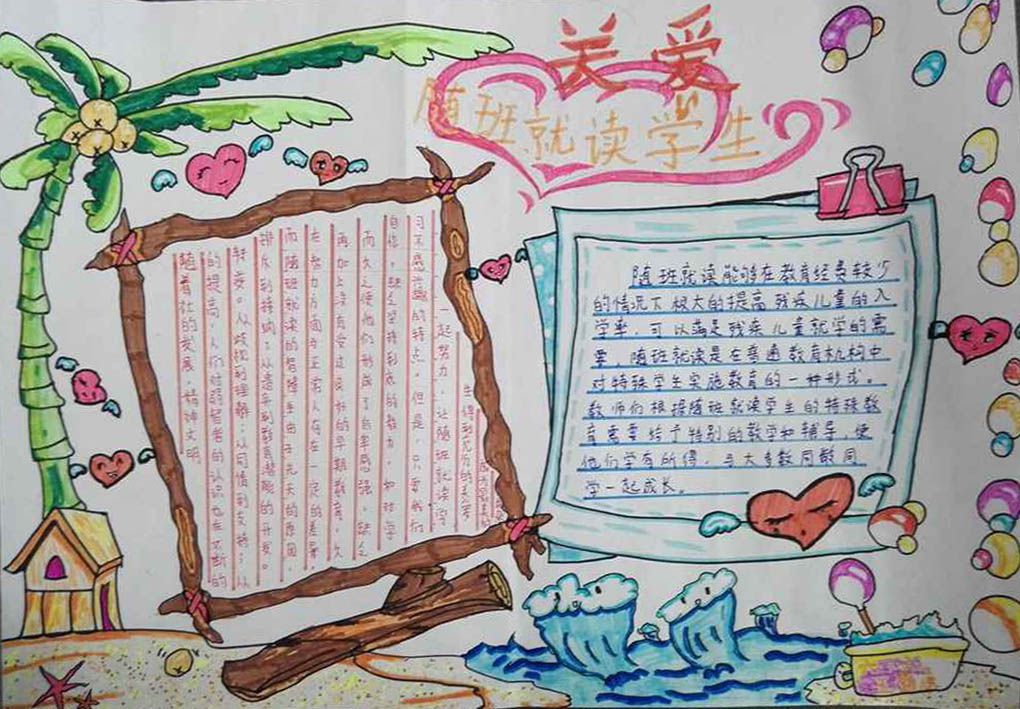 关爱
随班就读学生
随着社会的发展，精神文明
的提高，人们对弱智者的认识也在不断的
转变。从歧视到理解；从同情到支持；从
排斥到接纳；从遗弃到教育潜能的开发。
而随班就读的智障生由于先天的原因，
在智力方面与正常人存在一定的差异，
再加上没有受过良好的早期教育，久
而久之使他们形成了自卑感强，缺乏
自信，缺乏坚持到底的毅力，如对学
习不感兴趣的特点。但是，只要我们
一起努力，让随班就读学
生得到充分的关爱
随班就读能够在教育经费较少
的情况下极大的提高残疾儿童的入
学率，可以满足残疾儿童就学的需
要，随班就读是在普通教育机构中
对特殊学生实施教育的一种形式。
教师们根据随班就读学生的特殊教
育需要给予特别的教学和辅导，使
他们学有所得，与大多数同龄同
学一起成长。